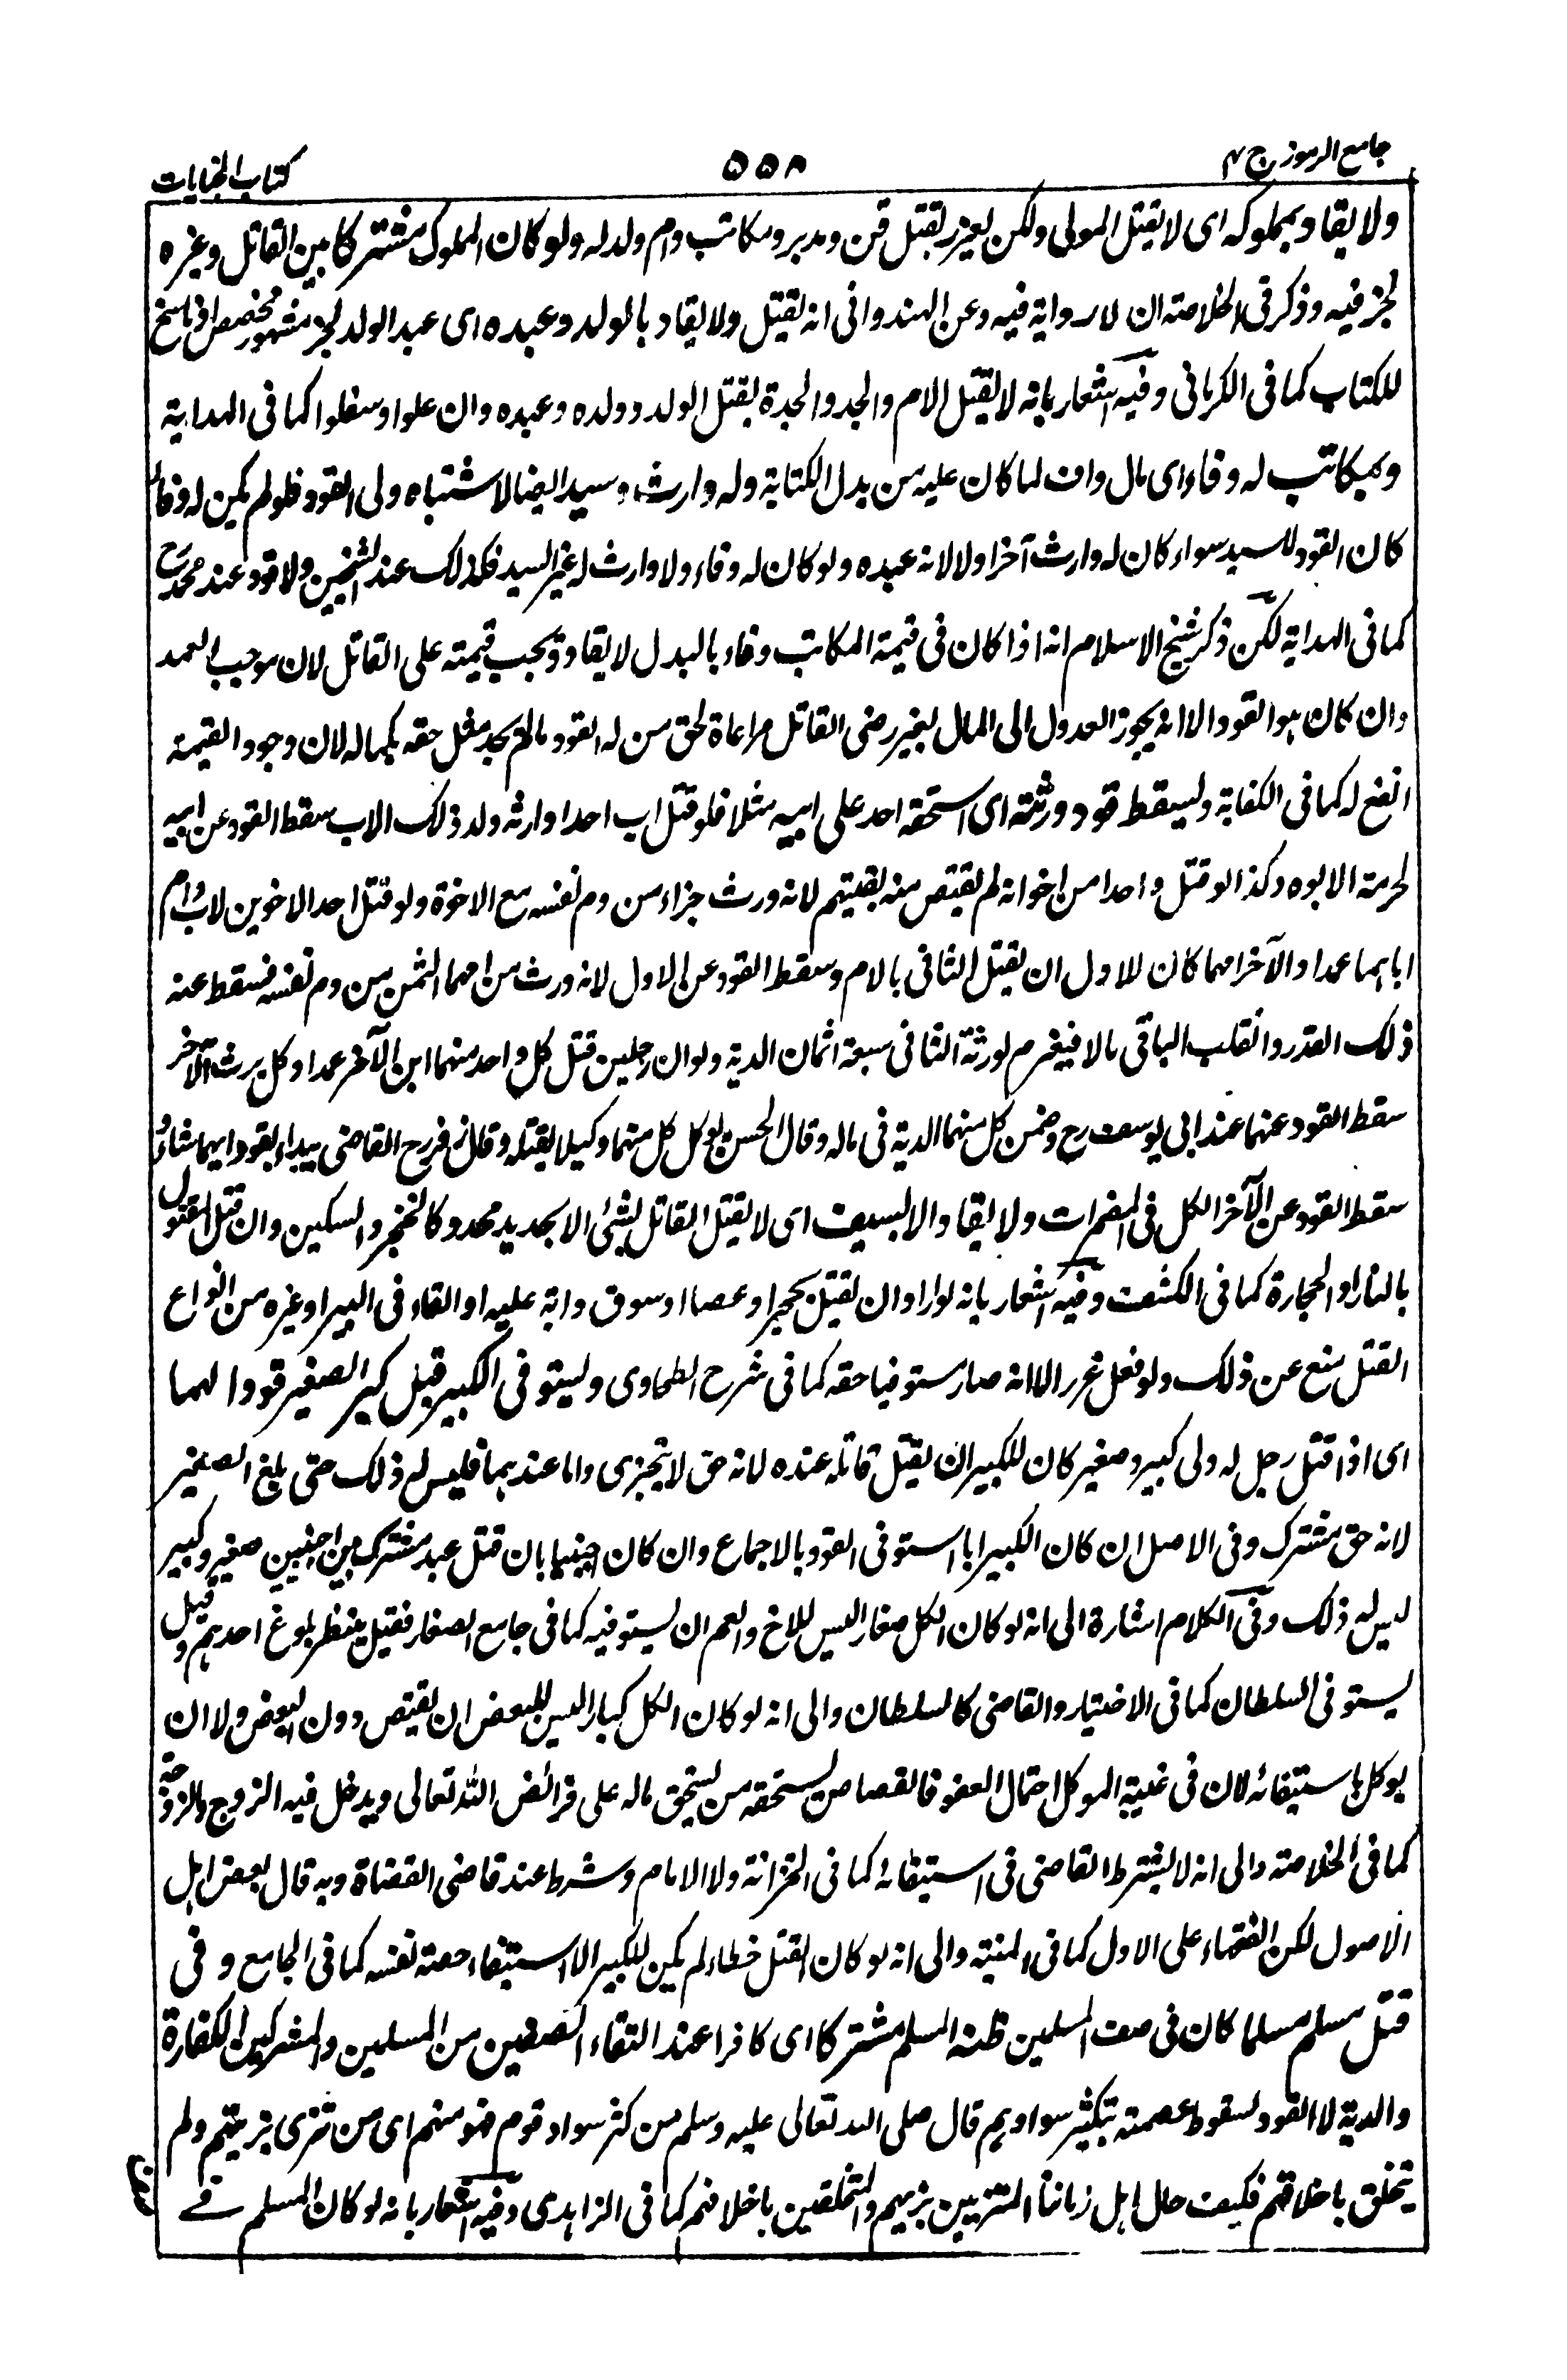 جامع الرموز ج ٢
٥٥٨
كتاب الجنايات
ولا يقاد بمملوكه اى لا يقتل المولى ولكن يعزر بقتل قن ومدبر ومكاتب وام ولد له ولو كان المملوك مشتركا بين القاتل وغيره
لجز فيه وذكر فى الخلاصة ان لا رواية فيه وعن الهندوانى انه يقتل ولا يقاد بالولد وعبده اى عبد الولد لخبر مشهور مخصص او ناسخ
للكتاب كما فى الكرمانى وفيه اشعار بانه لا يقتل الام والجد والجدة بقتل الولد وولده وعبده وان علوا وسفلوا كما فى الهداية
وبمكاتب له وفاء اى مال واف لما كان عليه من بدل الكتابة وله وارث وسيد ايضا لاشتباه ولى القود فلو لم يكن له وفاء
كان القود للسيد سواء كان له وارث آخر اولا لانه عبده ولو كان له وفاء ولا وارث له غير السيد فكذلك عند الشيخين ولا قود عند محمد رح
كما فى الهداية لكن ذكر شيخ الاسلام انه اذا كان فى قيمة المكاتب وفاء بالبدل لا يقاد وتجب قيمته على القاتل لان موجب العمد
وان كان هو القود الا انه يجوز العدول الى المال بغير رضى القاتل مراعاة لحق من له القود مالم يجد مثل حقه بكماله لان وجود القيمة
انفع له كما فى الكفاية ويسقط قود ورثته اى استحقه احد على ابيه مثلا فلو قتل اب احدا وارثه ولد ذلك الاب سقط القود عن ابيه
لحرمة الابوه وكذا لو قتل واحدا من اخوانه لم يقتص منه بقيتهم لانه ورث جزاء من دم نفسه مع الاخوة ولو قتل احد الاخوين لاب وام
اباهما عمدا والآخر امهما كان للاول ان يقتل الثانى بالام وسقط القود عن الاول لانه ورث من امهما الثمن من دم نفسه فسقط عنه
ذلك القدر وانقلب الباقى مالا فيغرم لورثة الثانى سبعة اثمان الدية ولو ان رجلين قتل كل واحد منهما ابن الآخر عمدا وكل يرث الآخر
سقط القود عنهما عند ابى يوسف رح وضمن كل منهما الدية فى ماله وقال الحسن يوكل كل منهما وكيلا يقتله وقال زفر رح القاضى يبداء بقود ايهما شاء و
سقط القود عن الآخر الكل فى المضمرات ولا يقاد الا بالسيف اى لا يقتل القاتل بشئ الا بحديد محدد كالخنجر والسكين وان قتل المقتول
بالنار او الحجارة كما فى الكشف وفيه اشعار بانه لو اراد ان يقتل بحجر او عصا او سوق دابة عليه او القاء فى البير او غيره من انواع
القتل منع عن ذلك ولو فعل عزر الا انه صار مستوفيا حقه كما فى شرح الطحاوى ويستوفى الكبير قبل كبر الصغير قودا لهما
اى اذا قتل رجل له ولى كبير وصغير كان للكبير ان يقتل قاتله عنده لانه حق لا يتجزى واما عندهما فليس له ذلك حتى بلغ الصغير
لانه حق مشترك وفى الاصل ان كان الكبير ابا استوفى القود بالاجماع وان كان اجنبيا بان قتل عبد مشترك بين اجنبيين صغير وكبير
ليس له ذلك وفى الكلام اشارة الى انه لو كان الكل صغارا ليس للاخ والعم ان يستوفيه كما فى جامع الصغار فقيل ينتظر بلوغ احدهم وقيل
يستوفى السلطان كما فى الاختيار والقاضى كالسلطان والى انه لو كان الكل كبارا ليس للبعض ان يقتص دون البعض ولا ان
يوكل باستيفائه لان فى غيبة الموكل احتمال العفو فالقصاص يستحقه من يستحق ماله على فرائض الله تعالى ويدخل فيه الزوج والزوجة
كما فى الخلاصة والى انه لا يشترط القاضى فى استيفائه كما فى الخزانة ولا الامام وشرط عند قاضى القضاة وبه قال بعض اهل
الاصول لكن الفقهاء على الاول كما فى المنية والى انه لو كان القتل خطاء لم يكن للكبير الا استيفاء حصة نفسه كما فى الجامع وفى
قتل مسلم مسلما كان فى صف المسلمين ظنه المسلم مشتركا اى كافرا عند التقاء الصفين من المسلمين والمشركين الكفارة
والدية لا القود لسقوط عصمته بتكثير سوادهم قال صلى الله تعالى عليه وسلم من كثر سواد قوم فهو منهم اى من تزى بزيهم ولم
يتخلق باخلاقهم فكيف حال اهل زماننا المتزيين بزيهم والمتخلقين باخلاقهم كما فى الزاهدى وفيه اشعار بانه لو كان المسلم فى